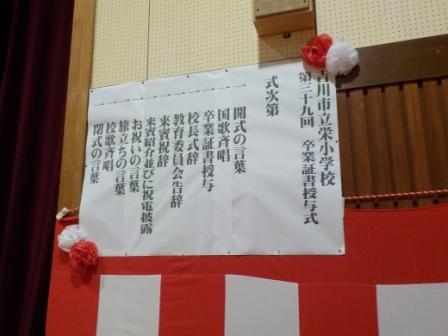 吉川市立栄小学校
第三十九回 卒業証書授与式
式次第
一 開式の言葉
一 国歌斉唱
一 卒業証書授与
一 校長式辞
一 教育委員会告辞
一 来賓祝辞
一 来賓紹介並びに祝電披露
一 お祝いの言葉
一 旅立ちの言葉
一 校歌斉唱
一 閉式の言葉